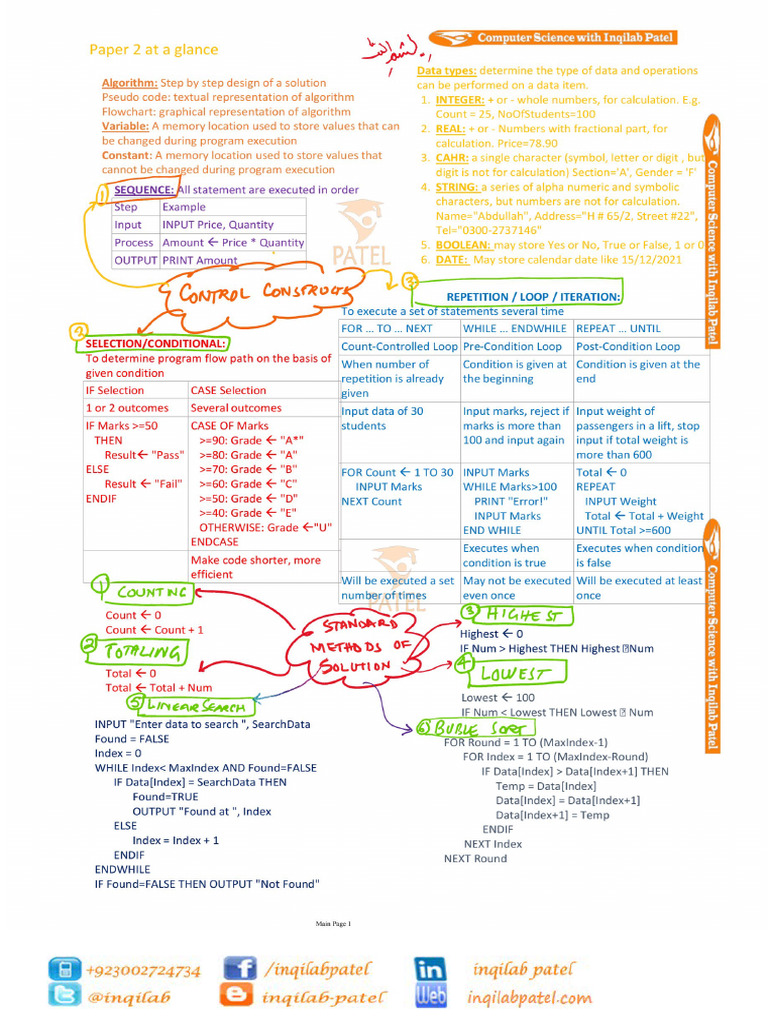 Computer Science with Inqilab Patel
Paper 2 at a glance
Algorithm: Step by step design of a solution
Pseudo code: textual representation of algorithm
Flowchart: graphical representation of algorithm
Variable: A memory location used to store values that can
be changed during program execution
Constant: A memory location used to store values that
cannot be changed during program execution
Data types: determine the type of data and operations
can be performed on a data item.
1. INTEGER: + or - whole numbers, for calculation. E.g.
Count = 25, NoOfStudents=100
2. REAL: + or - Numbers with fractional part, for
calculation. Price=78.90
3. CAHR: a single character (symbol, letter or digit , but
digit is not for calculation) Section='A', Gender = 'F'
4. STRING: a series of alpha numeric and symbolic
characters, but numbers are not for calculation.
Name="Abdullah", Address="H # 65/2, Street #22",
Tel="0300-2737146"
5. BOOLEAN: may store Yes or No, True or False, 1 or 0
6. DATE: May store calendar date like 15/12/2021
Computer Science with Inqilab Patel
1 SEQUENCE: All statement are executed in order
Step Example
Input INPUT Price, Quantity
Process Amount ← Price * Quantity
OUTPUT PRINT Amount
PATEL
CONTROL CONSTRUCTS
2
SELECTION/CONDITIONAL:
To determine program flow path on the basis of
given condition
IF Selection CASE Selection
1 or 2 outcomes Several outcomes
IF Marks >=50 CASE OF Marks
THEN >=90: Grade ← "A*"
Result← "Pass" >=80: Grade ← "A"
ELSE >=70: Grade ← "B"
Result ← "Fail" >=60: Grade ← "C"
ENDIF >=50: Grade ← "D"
>=40: Grade ← "E"
OTHERWISE: Grade ←"U"
ENDCASE
Make code shorter, more
efficient
3
REPETITION / LOOP / ITERATION:
To execute a set of statements several time
FOR ... TO ... NEXT WHILE ... ENDWHILE REPEAT ... UNTIL
Count-Controlled Loop Pre-Condition Loop Post-Condition Loop
When number of Condition is given at Condition is given at the
repetition is already the beginning end
given
Input data of 30 Input marks, reject if Input weight of
students marks is more than passengers in a lift, stop
100 and input again input if total weight is
more than 600
FOR Count ← 1 TO 30 INPUT Marks Total ← 0
INPUT Marks WHILE Marks>100 REPEAT
NEXT Count PRINT "Error!" INPUT Weight
INPUT Marks Total ← Total + Weight
END WHILE UNTIL Total >=600
Executes when Executes when condition
condition is true is false
Will be executed a set May not be executed Will be executed at least
number of times even once once
PATEL
Computer Science with Inqilab Patel
STANDARD
METHODS OF
SOLUTION
1 COUNTING
Count ← 0
Count ← Count + 1
2 TOTALING
Total ← 0
Total ← Total + Num
3 HIGHEST
Highest ← 0
IF Num > Highest THEN Highest ⍰Num
4 LOWEST
Lowest ← 100
IF Num < Lowest THEN Lowest ⍰ Num
5 LINEAR SEARCH
INPUT "Enter data to search ", SearchData
Found = FALSE
Index = 0
WHILE Index< MaxIndex AND Found=FALSE
IF Data[Index] = SearchData THEN
Found=TRUE
OUTPUT "Found at ", Index
ELSE
Index = Index + 1
ENDIF
ENDWHILE
IF Found=FALSE THEN OUTPUT "Not Found"
6 BUBLE SORT
FOR Round = 1 TO (MaxIndex-1)
FOR Index = 1 TO (MaxIndex-Round)
IF Data[Index] > Data[Index+1] THEN
Temp = Data[Index]
Data[Index] = Data[Index+1]
Data[Index+1] = Temp
ENDIF
NEXT Index
NEXT Round
Main Page 1
+923002724734 /inqilabpatel in inqilab patel
@inqilab inqilab-patel Web inqilabpatel.com